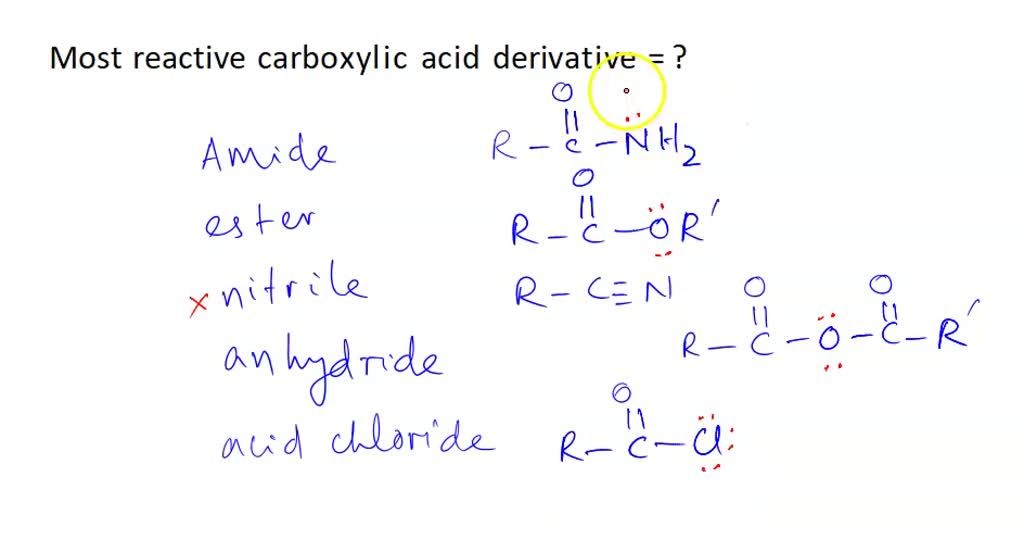 Most reactive carboxylic acid derivative = ?
Amide R – C – NH2
O
ester R – C – OR′
O
x nitrile R – C ≡ N
anhydride R – C – O – C – R′
O O
acid chloride R – C – Cl
O